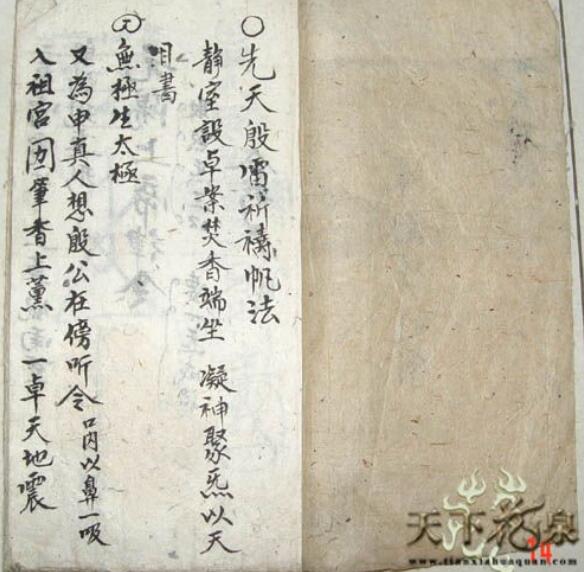 ○先天殷雷祈禱帆法
靜室設卓案焚香端坐 凝神聚炁以天
目書
無極生太極
又為申真人想殷公在傍聽令 口內以鼻一吸
入祖宮 筆香上薰 一卓天地震
天下花泉
www.tianxiahuaquan.com
14